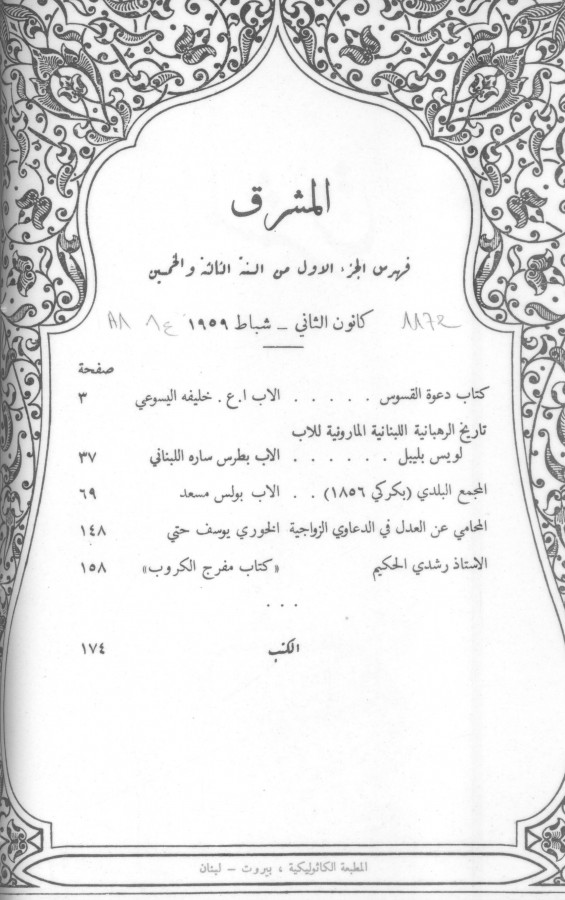 المشرق
فهرس الجزء الاول من السنة الثالثة والخمسين
كانون الثاني - شباط ١٩٥٩
صفحة
كتاب دعوة القسوس . . . . . الاب ا. ع. خليفه اليسوعي ٣
تاريخ الرهبانية اللبنانية المارونية للاب
لويس بليبل . . . . . . الاب بطرس ساره اللبناني ٣٧
المجمع البلدي (بكركي ١٨٥٦) . . الاب بولس مسعد ٦٩
المحامي عن العدل في الدعاوي الزواجية الخوري يوسف حتي ١٤٨
الاستاذ رشدي الحكيم «كتاب مفرج الكروب» ١٥٨
. . .
الكتب ١٧٤
المطبعة الكاثوليكية ، بيروت - لبنان